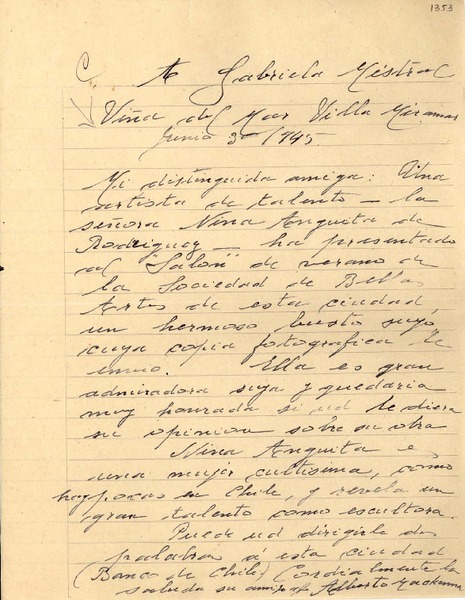 1353
A Gabriela Mistral
Viña del Mar Villa Miramar
Junio 3 - /945.
Mi distinguida amiga: Una
artista de talento - la
señora Nina Anguita de
Rodriguez - ha presentado
al "Salon" de verano de
la Sociedad de Bellas
Artes de esta ciudad,
un hermoso busto suyo
cuya copia fotografica le
envio. Ella es gran
admiradora suya y quedaria
muy honrada si ud le diera
su opinion sobre su obra
Nina Anguita es
una mujer cultisima, como
hay pocas en Chile, y revela un
gran talento como escultora.
Puede ud dirigirle dos
palabras a esta ciudad
(Banco de Chile) Cordialmente la
saluda su amigo Alberto Mackenna